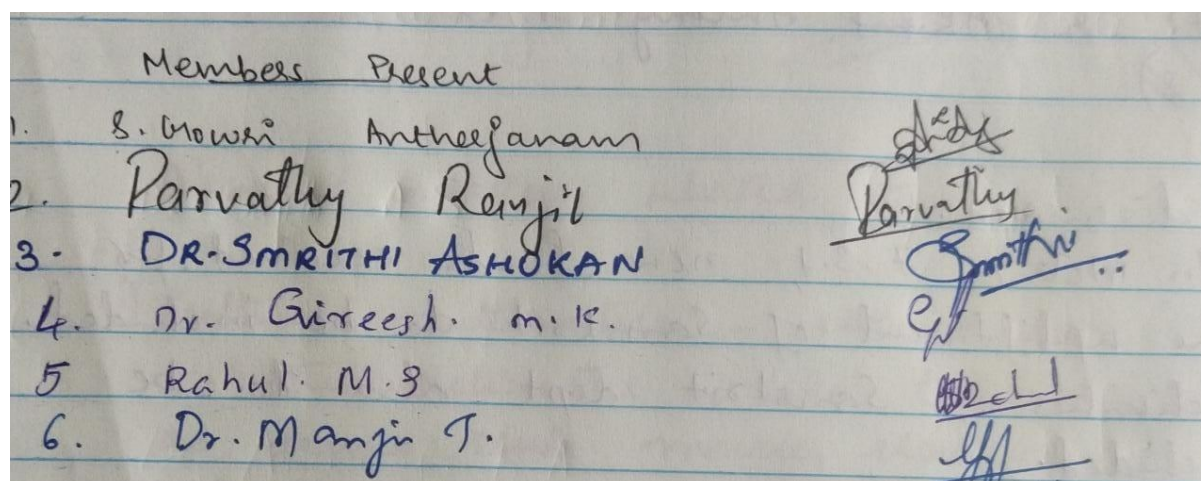 Members Present
1. S. Gowri Antherjanam
2. Parvathy Ranjit Parvathy
3. DR. SMRITHI ASHOKAN Smrithi
4. Dr. Gireesh. M.K.
5 Rahul. M.S
6. Dr. Manju T.